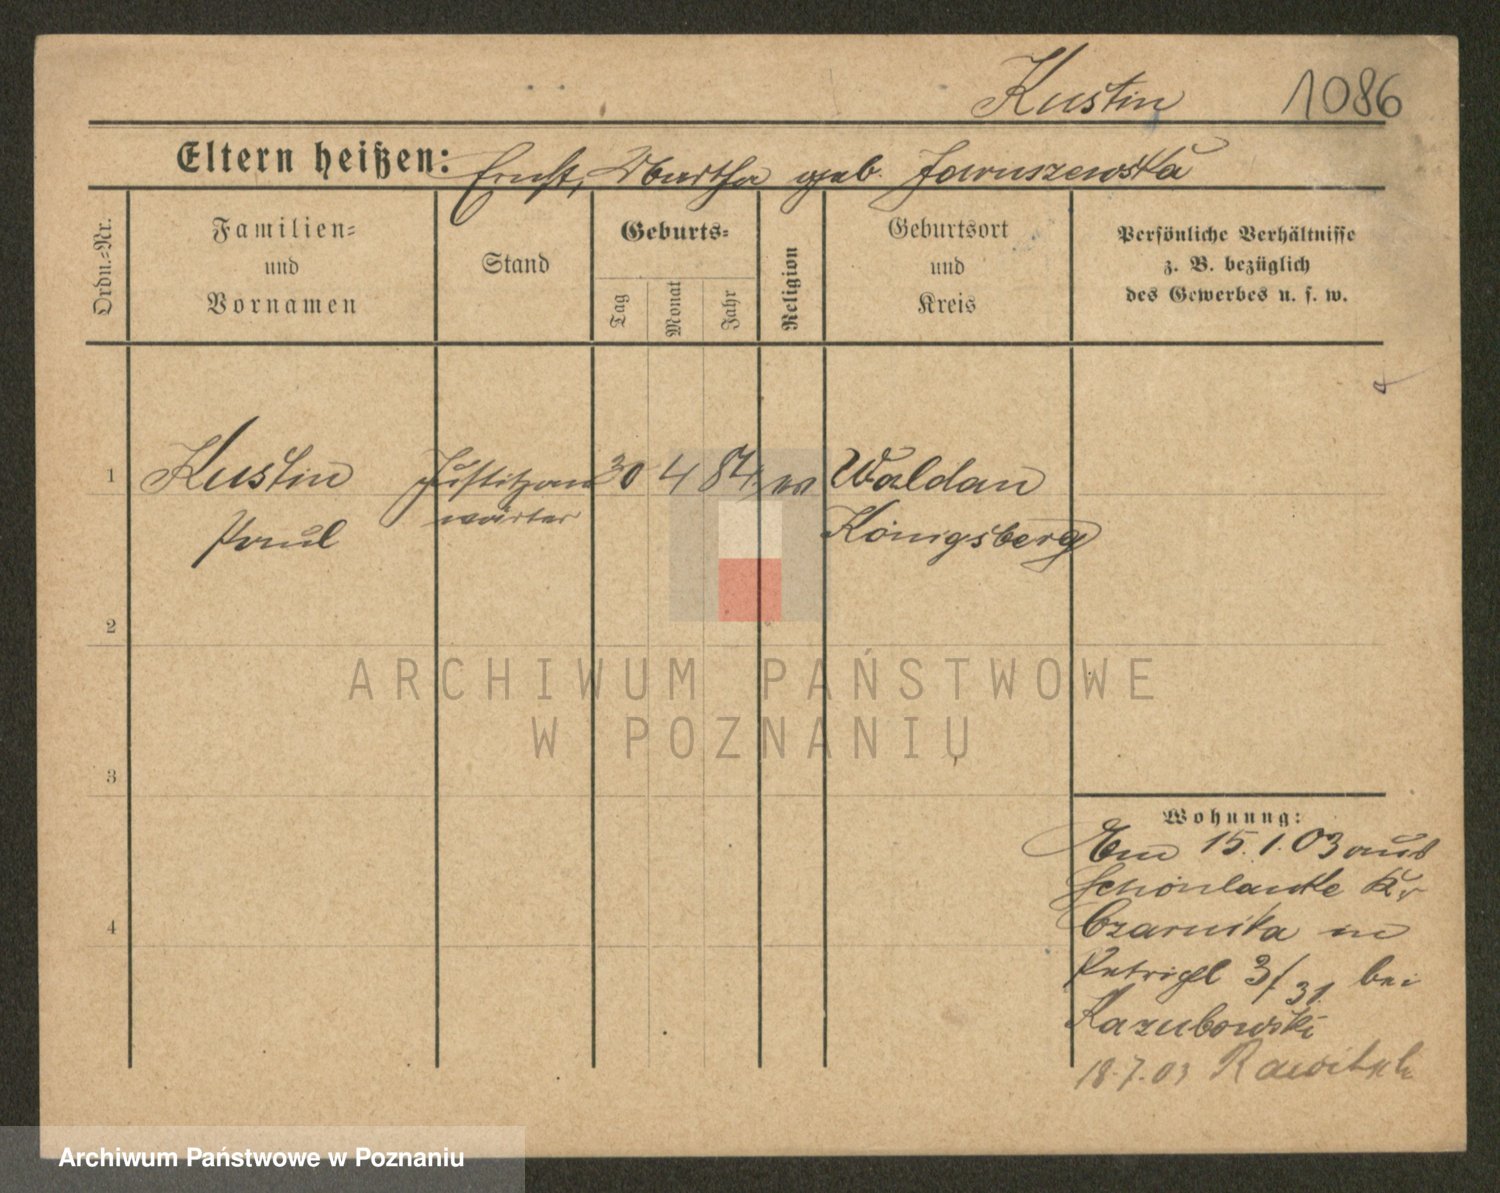 Kustin 1086
Eltern heißen: Ernst, Martha geb. Jaruszewska
Ordn.-Nr.
Familien-
und
Vornamen
Stand
Geburts-
Tag
Monat
Jahr
Religion
Geburtsort
und
Kreis
Persönliche Verhältnisse
z. B. bezüglich
des Gewerbes u. s. w.
1 Kustin Justizan 30 4 84 Waldau
Paul wärter Königsberg
2
ARCHIWUM PAŃSTWOWE
W POZNANIU
3
Wohnung:
15.1.03 aus
Schönlanke Kr
4 Czarnika in
3/31. bei
Kazubowski
18.7.03 Rawitsch
Archiwum Państwowe w Poznaniu